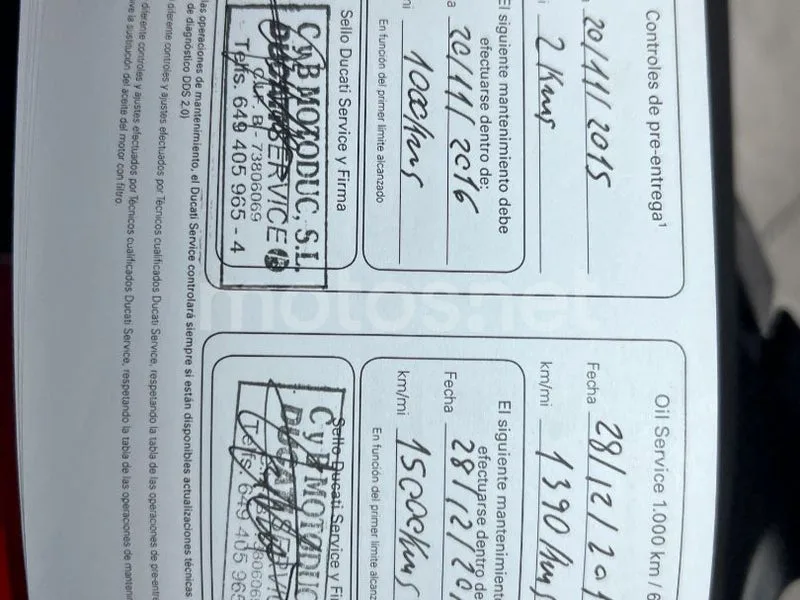 Controles de pre-entrega¹
20/11/2015
2 Kms
El siguiente mantenimiento debe
efectuarse dentro de:
20/11/2016
1000 Kms
En función del primer límite alcanzado
Sello Ducati Service y Firma
CyB MOTODUC, S.L.
SERVICE
73806069
Telfs. 649 405 965 - 4
Oil Service 1.000 km / 6
Fecha 28/12/201
km/mi 1390 Kms
El siguiente mantenimiento
efectuarse dentro de
Fecha 28/12/20
km/mi 15000 Kms
En función del primer límite alcanz
Sello Ducati Service y Fi
CyB MOTODUC
DUCATI SERVI
Telfs. 649 405 965
las operaciones de mantenimiento, el Ducati Service controlará siempre si están disponibles actualizaciones técnicas
de diagnóstico DDS 2.0)
diferente controles y ajustes efectuados por Técnicos cualificados Ducati Service, respetando la tabla de las operaciones de pre-entre
diferente controles y ajustes efectuados por Técnicos cualificados Ducati Service, respetando la tabla de las operaciones de manteni
ve la sustitución del aceite del motor con filtro.
motos.net